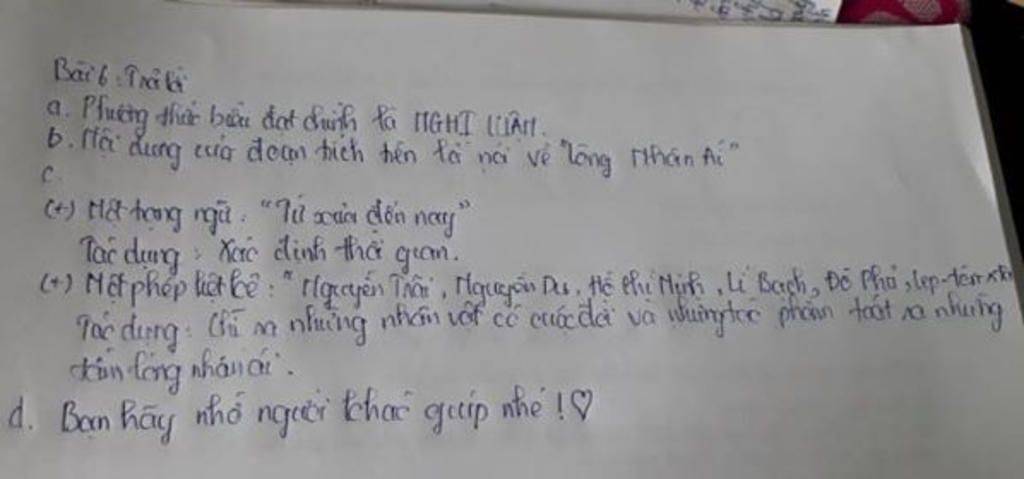 Bài 6: Trả lời
a. Phương thức biểu đạt chính là NGHỊ LUẬN.
b. Nội dung của đoạn trích trên là nói về "Lòng Nhân Ái"
c.
(+) Một trạng ngữ: "Từ xưa đến nay"
Tác dụng: Xác định thời gian.
(+) Một phép liệt kê: "Nguyễn Trãi, Nguyễn Du, Hồ Chí Minh, Lí Bạch, Đỗ Phủ, Lep-tôn-xtôi
Tác dụng: Chỉ ra những nhân vật có cuộc đời và những tác phẩm toát ra những
tấm lòng nhân ái.
d. Bạn hãy nhờ người khác giúp nhé!♡